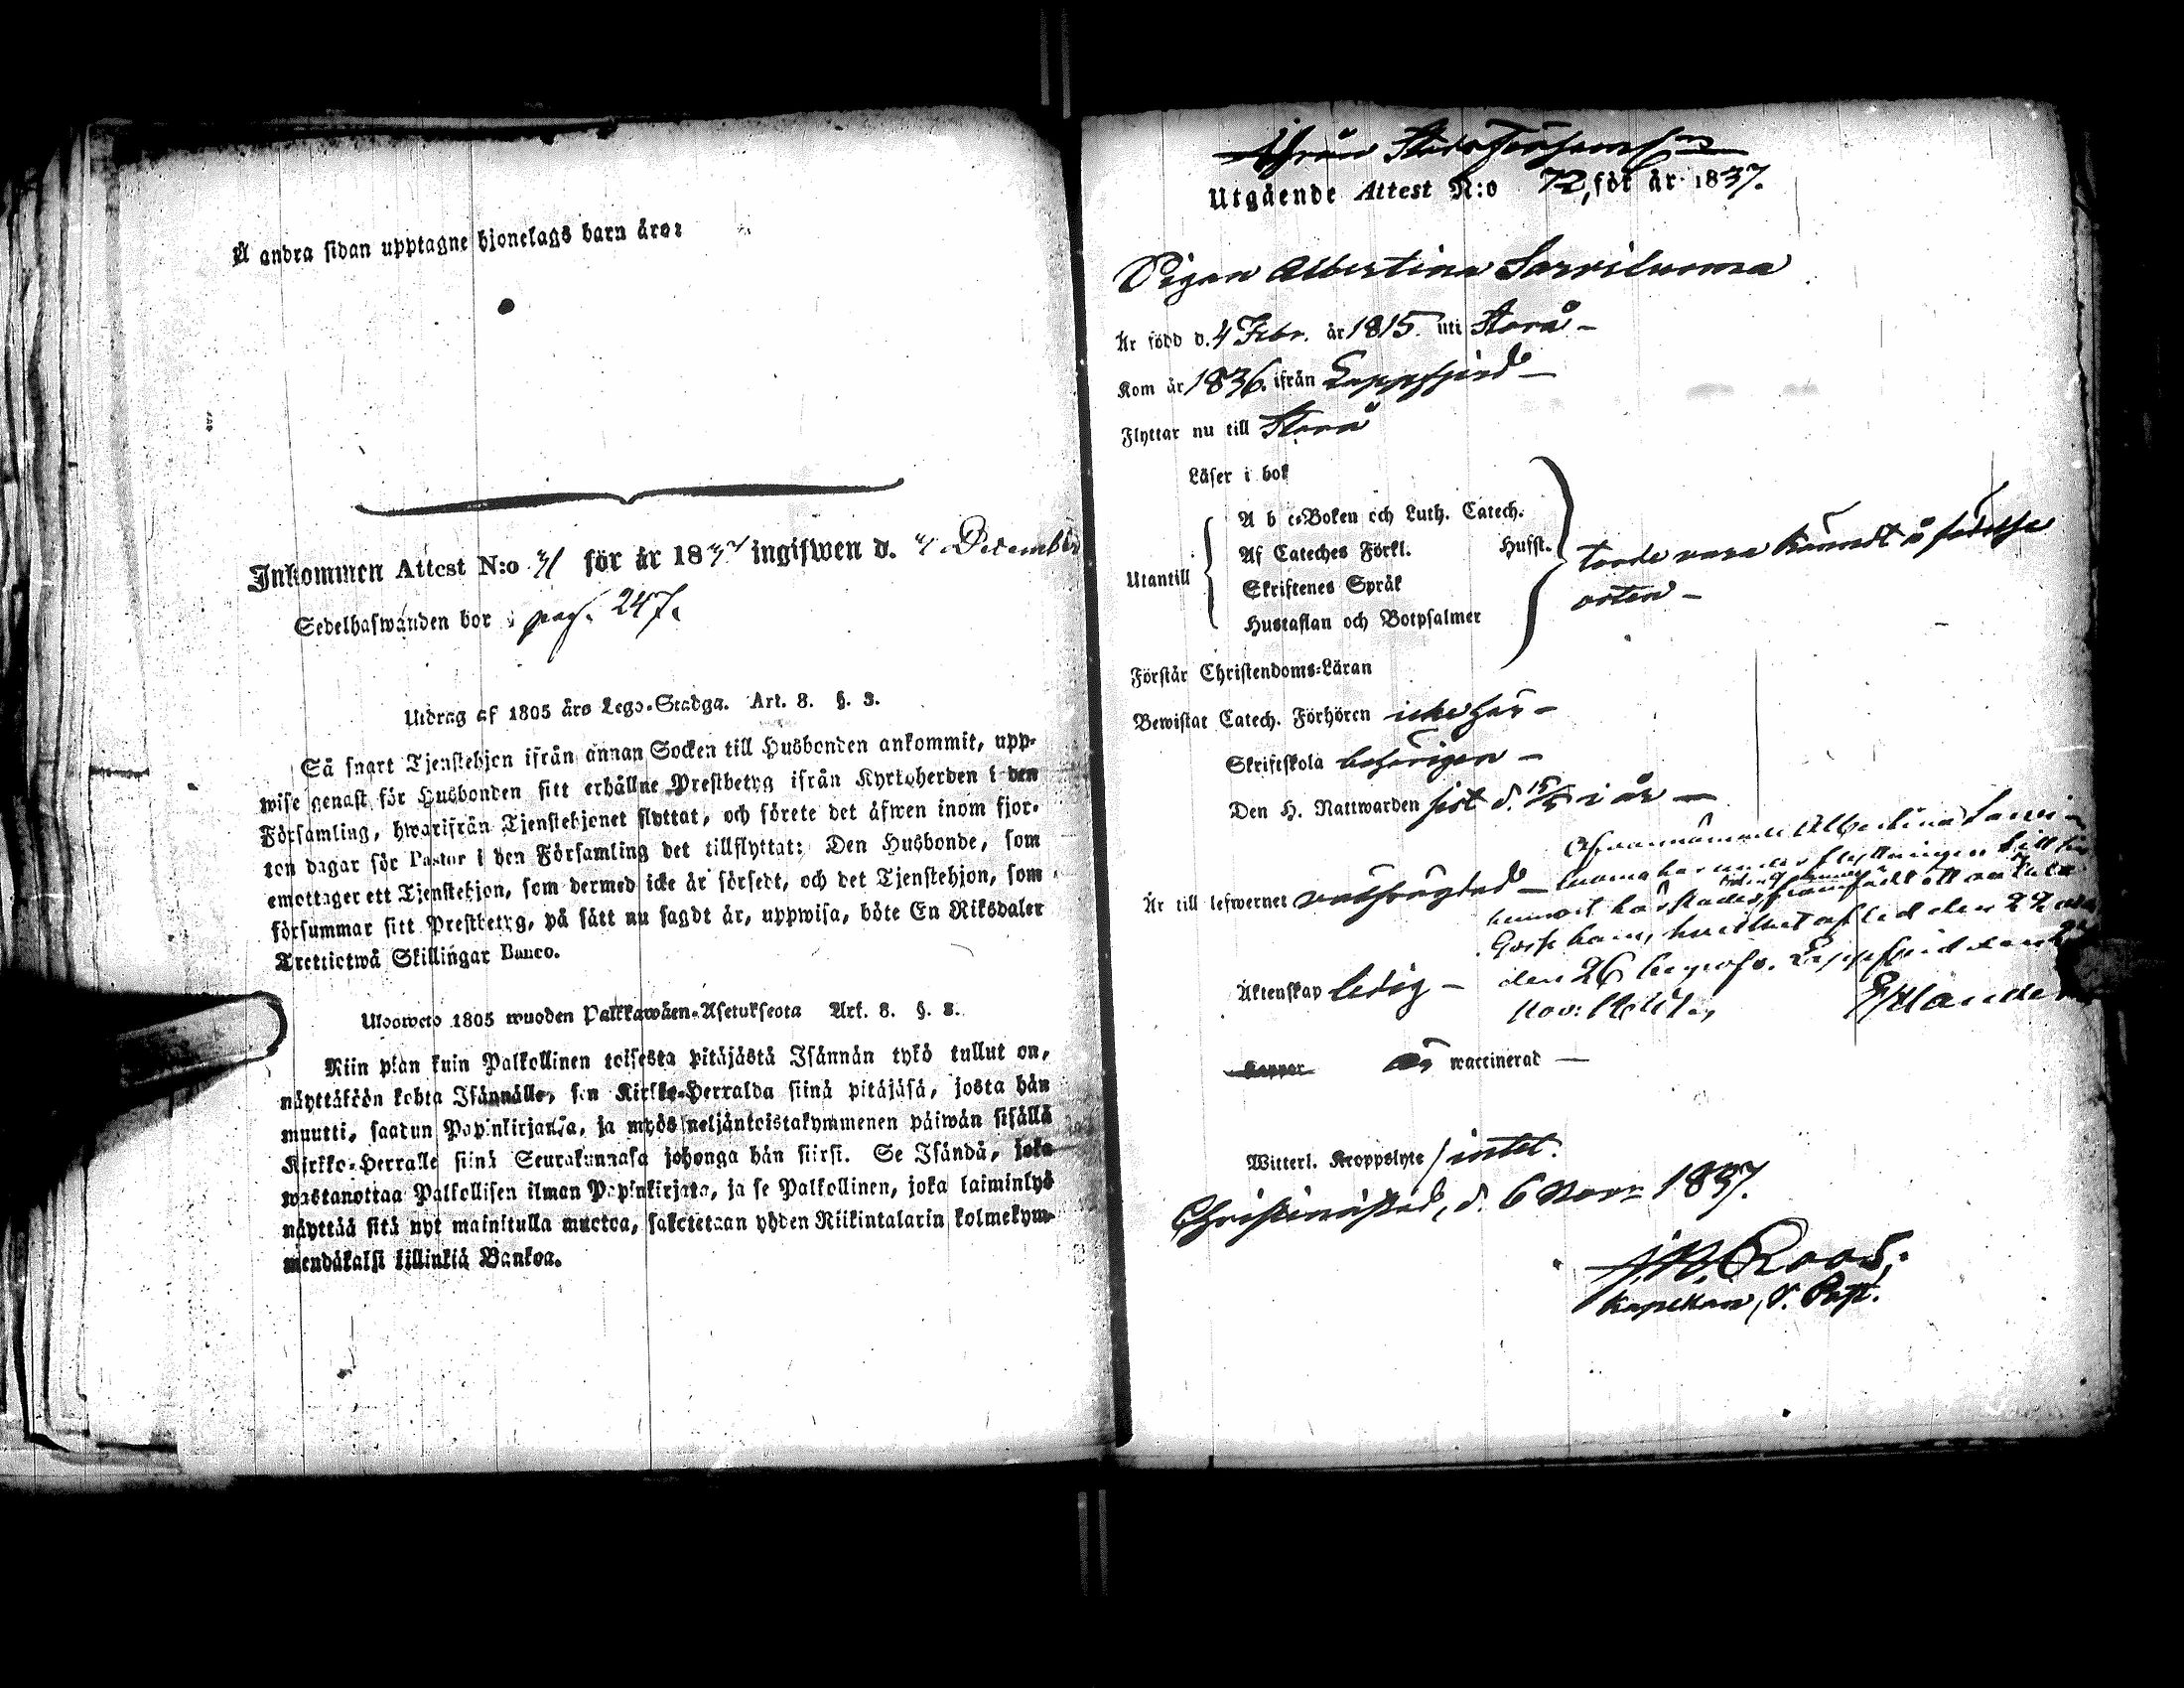 Å andra sidan upptagne hjonelags barn äro:
Inkommen Attest N:o 31 för år 1837 ingifwen d. 4 December
Sedelhafwanden bor pag. 247.
Utdrag af 1805 års Lego-Stadga. Art. 8. §. 3.
Så snart Tjenstehjon ifrån annan Socken till Husbonden ankommit, upp-
wise genast för Husbonden sitt erhållne Prestbetyg ifrån Kyrkoherden i den
Församling, hwarifrån Tjenstehjonet flyttat, och förete det äfwen inom fjor-
ton dagar för Pastor i den Församling det tillflyttat: Den Husbonde, som
emottager ett Tjenstehjon, som dermed icke är försedt, och det Tjenstehjon, som
försummar sitt Prestbetyg, på sätt nu sagdt är, uppwisa, böte En Riksdaler
Trettictwå Skillingar Banco.
Ulosweto 1805 wuoden Palkkawäen-Asetuksesta Art. 8. §. 3.
Niin pian kuin Palkollinen toisesta pitäjästä Isännän tykö tullut on,
näyttäköön kohta Isännälle, sen Kirkko-Herralda siinä pitäjäsä, josta hän
muutti, saadun Papinkirjansa, ja myös neljäntoistakymmenen päiwän sisällä
Kirkko-Herralle siinä Seurakunnasa johonga hän siirsi. Se Isändä, joka
wastanottaa Palkollisen ilman Papinkirjata, ja se Palkollinen, joka laiminlyö
näyttää sitä nyt mainitulla muotoa, sakotetaan yhden Riikintalarin kolmekym-
mendäkaksi killinkiä Bankoa.
Utgående Attest N:o 72, för år 1837.
Pigan Albertina Sarviluoma
Är född d. 4 Febr. år 1815. uti Storå –
Kom år 1836. ifrån Lappfjerd –
Flyttar nu till Storå
Läser i bok
Utantill
A b c-Boken och Luth. Catech.
Af Cateches Förkl. Husst.
Skriftenes Språk
Hustaflan och Botpsalmer
torde vara kändt å födelse
orten –
Förstår Christendoms-Läran
Bewistat Catech. Förhören icke här –
Skriftskola behörigen –
Den H. Nattwarden sist d. 15/5 i år –
Ofvannämnde Albertina Sarvi-
Är till lefwernet välfrägdad – luoma har under flyttningen till
den 26 begrafv. Lappfjerd den
Äktenskap ledig –
Koppor är waccinerad –
Witterl. Kroppslyte intet.
Christinestad, d. 6 Novr 1837.
J. W. Roos,
Kapellan, V. Past.